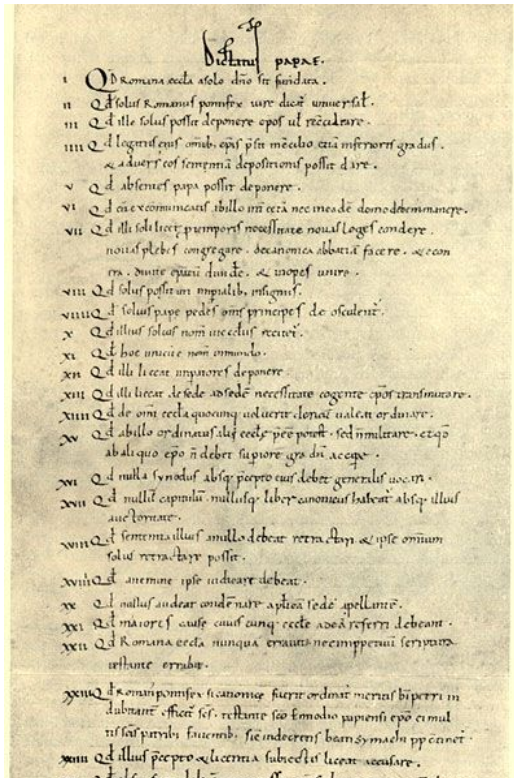 Dictatus papae.
I Qd Romana eccla a solo dno sit fundata.
II Qd solus Romanus pontifex iure dicat universal.
III Qd ille solus possit deponere epos vl reconciliare.
IIII Qd legatus eius omib, epis psit in concilio, etiã inferioris gradus.
& adversus eos sententiã depositionis possit dare.
V Qd absentes papa possit deponere.
VI Qd cũ excomunicatis ab illo int cetã nec in eadẽ domo debem manere.
VII Qd illi soli licet p temporis necessitate novas leges condere
novas plebes congregare. de canonica abbatiã facere. & econ
tra. divite epatũ divide. & inopes unire.
VIII Qd solus possit uti impialib, insignis.
VIIII Qd solius pape pedes oms principes deosculent.
X Qd illius solius nom in ecclis recitet.
XI Qd hoc unicũ e nom in mundo.
XII Qd illi liceat impatores deponere.
XIII Qd illi liceat de sede ad sedẽ necessitate cogente epos transmutare.
XIIII Qd de omi eccla quocũq, voluerit clericũ valeat ordinare.
XV Qd ab illo ordinatus alii eccle pee potest. sed n militare. et qd
ab aliquo epo n debet supiore gradũ accipe.
XVI Qd nulla synodus absq, pcepto eius debet generalis vocari.
XVII Qd nullũ capitulũ. nullusq, liber canonicus habeat absq, illius
auctoritate.
XVIII Qd sententia illius a nullo debeat retractari. & ipse omium
solus retractare possit.
XVIIII Qd a nemine ipse iudicare debeat.
XX Qd nullus audeat condẽnare aplicã sedẽ apellante.
XXI Qd maiores cause cuiuscunq, eccle ad eã referri debeant.
XXII Qd Romana eccla nunquã erravit nec imppetuũ scriptura
testante errabit.
XXIII Qd Romanus pontifex si canonice fuerit ordinat meritis bi petri in
dubitant efficit scs. testante sco Ennodio papiensi epo ei mul
tis scis patribs faventib. sic in decretis beati symachi pp ctinet.
XXIIII Qd illius pcepto & licentia subiectis liceat accusare.